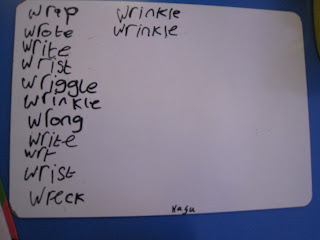 wrap wrinkle
wrote wrinkle
write
wrist
wriggle
wrinkle
wrong
write
wrt
wrist
wreck